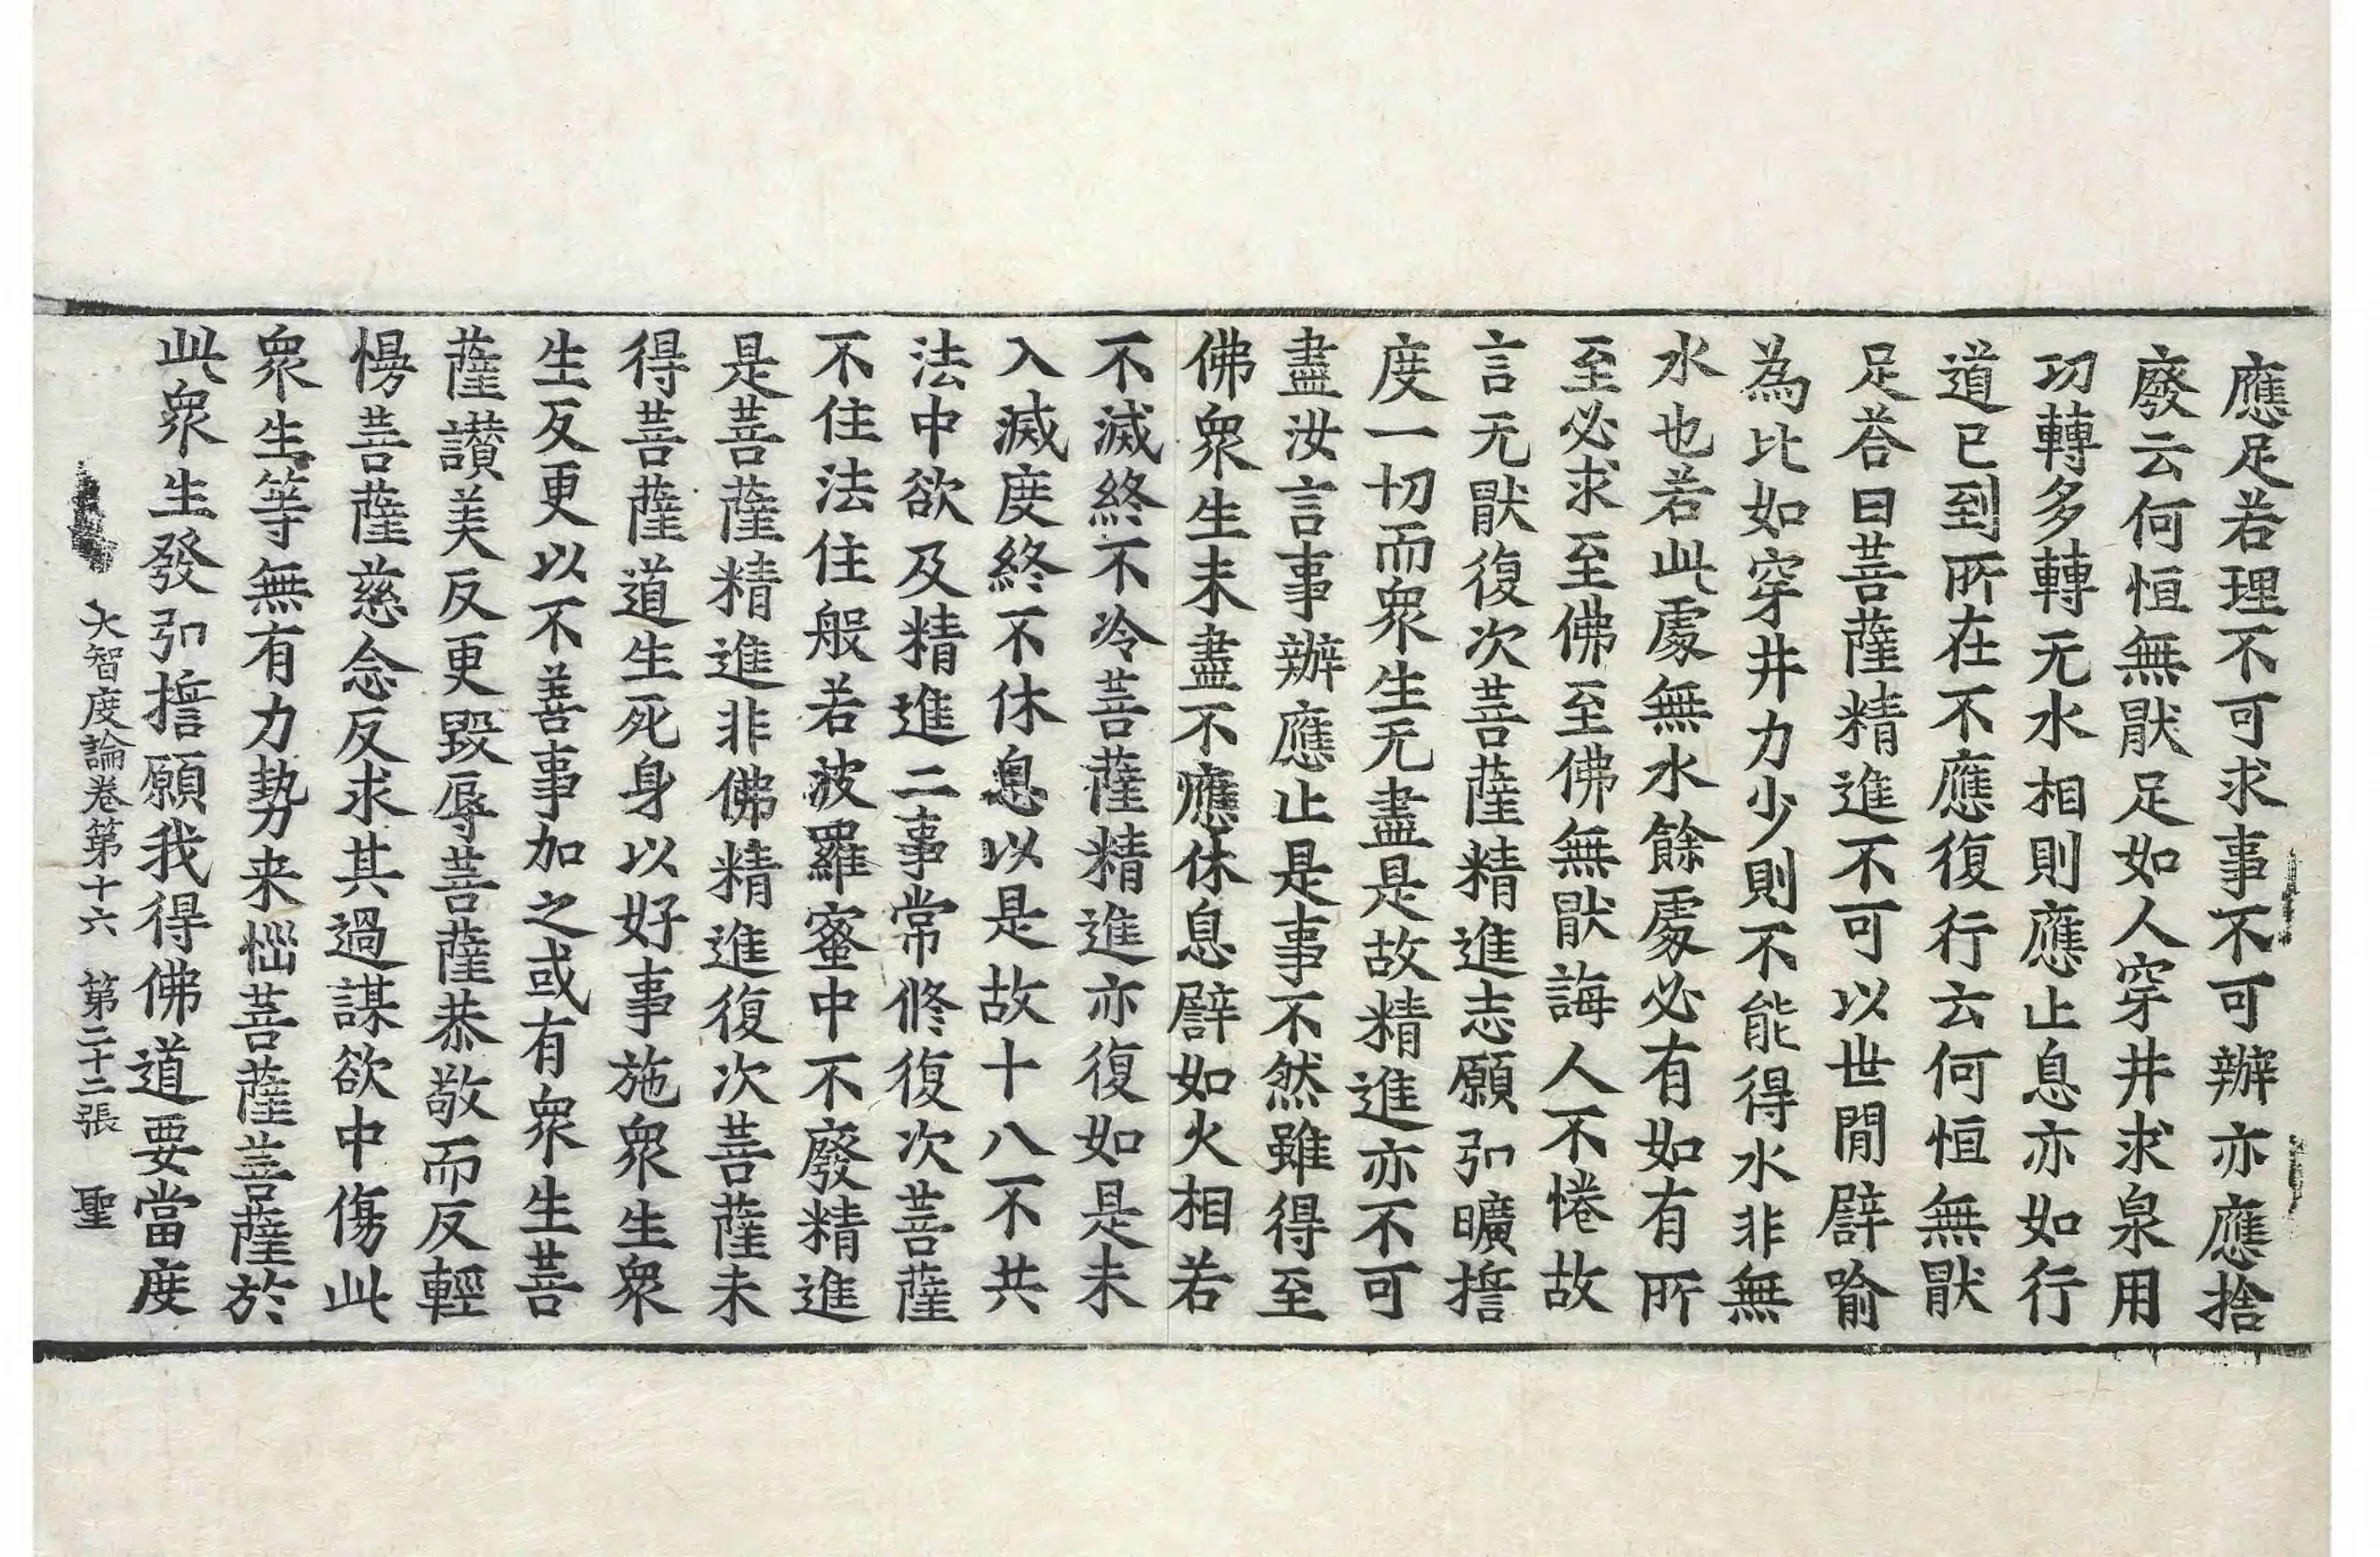 應足若理不可求事不可辦亦應捨
廢云何恒無猒足如人穿井求泉用
功轉多轉无水相則應止息亦如行
道已到所在不應復行云何恒無猒
足荅曰菩薩精進不可以世閒譬喻
為比如穿井力少則不能得水非無
水也若此處無水餘處必有如有所
至必求至佛至佛無猒誨人不惓故
言无猒復次菩薩精進志願弘曠擔
度一切而衆生无盡是故精進亦不可
盡汝言事辦應止是事不然雖得至
佛衆生未盡不應休息譬如火相若
不滅終不冷菩薩精進亦復如是未
入滅度終不休息以是故十八不共
法中欲及精進二事常修復次菩薩
不住法住般若波羅蜜中不廢精進
是菩薩精進非佛精進復次菩薩未
得菩薩道生死身以好事施衆生衆
生反更以不善事加之或有衆生菩
薩讃美反更毀辱菩薩恭敬而反輕
慢菩薩慈念反求其過謀欲中傷此
衆生等無有力勢来惱菩薩菩薩於
此衆生發弘擔願我得佛道要當度
大智度論卷第十六 第二十二張 聖